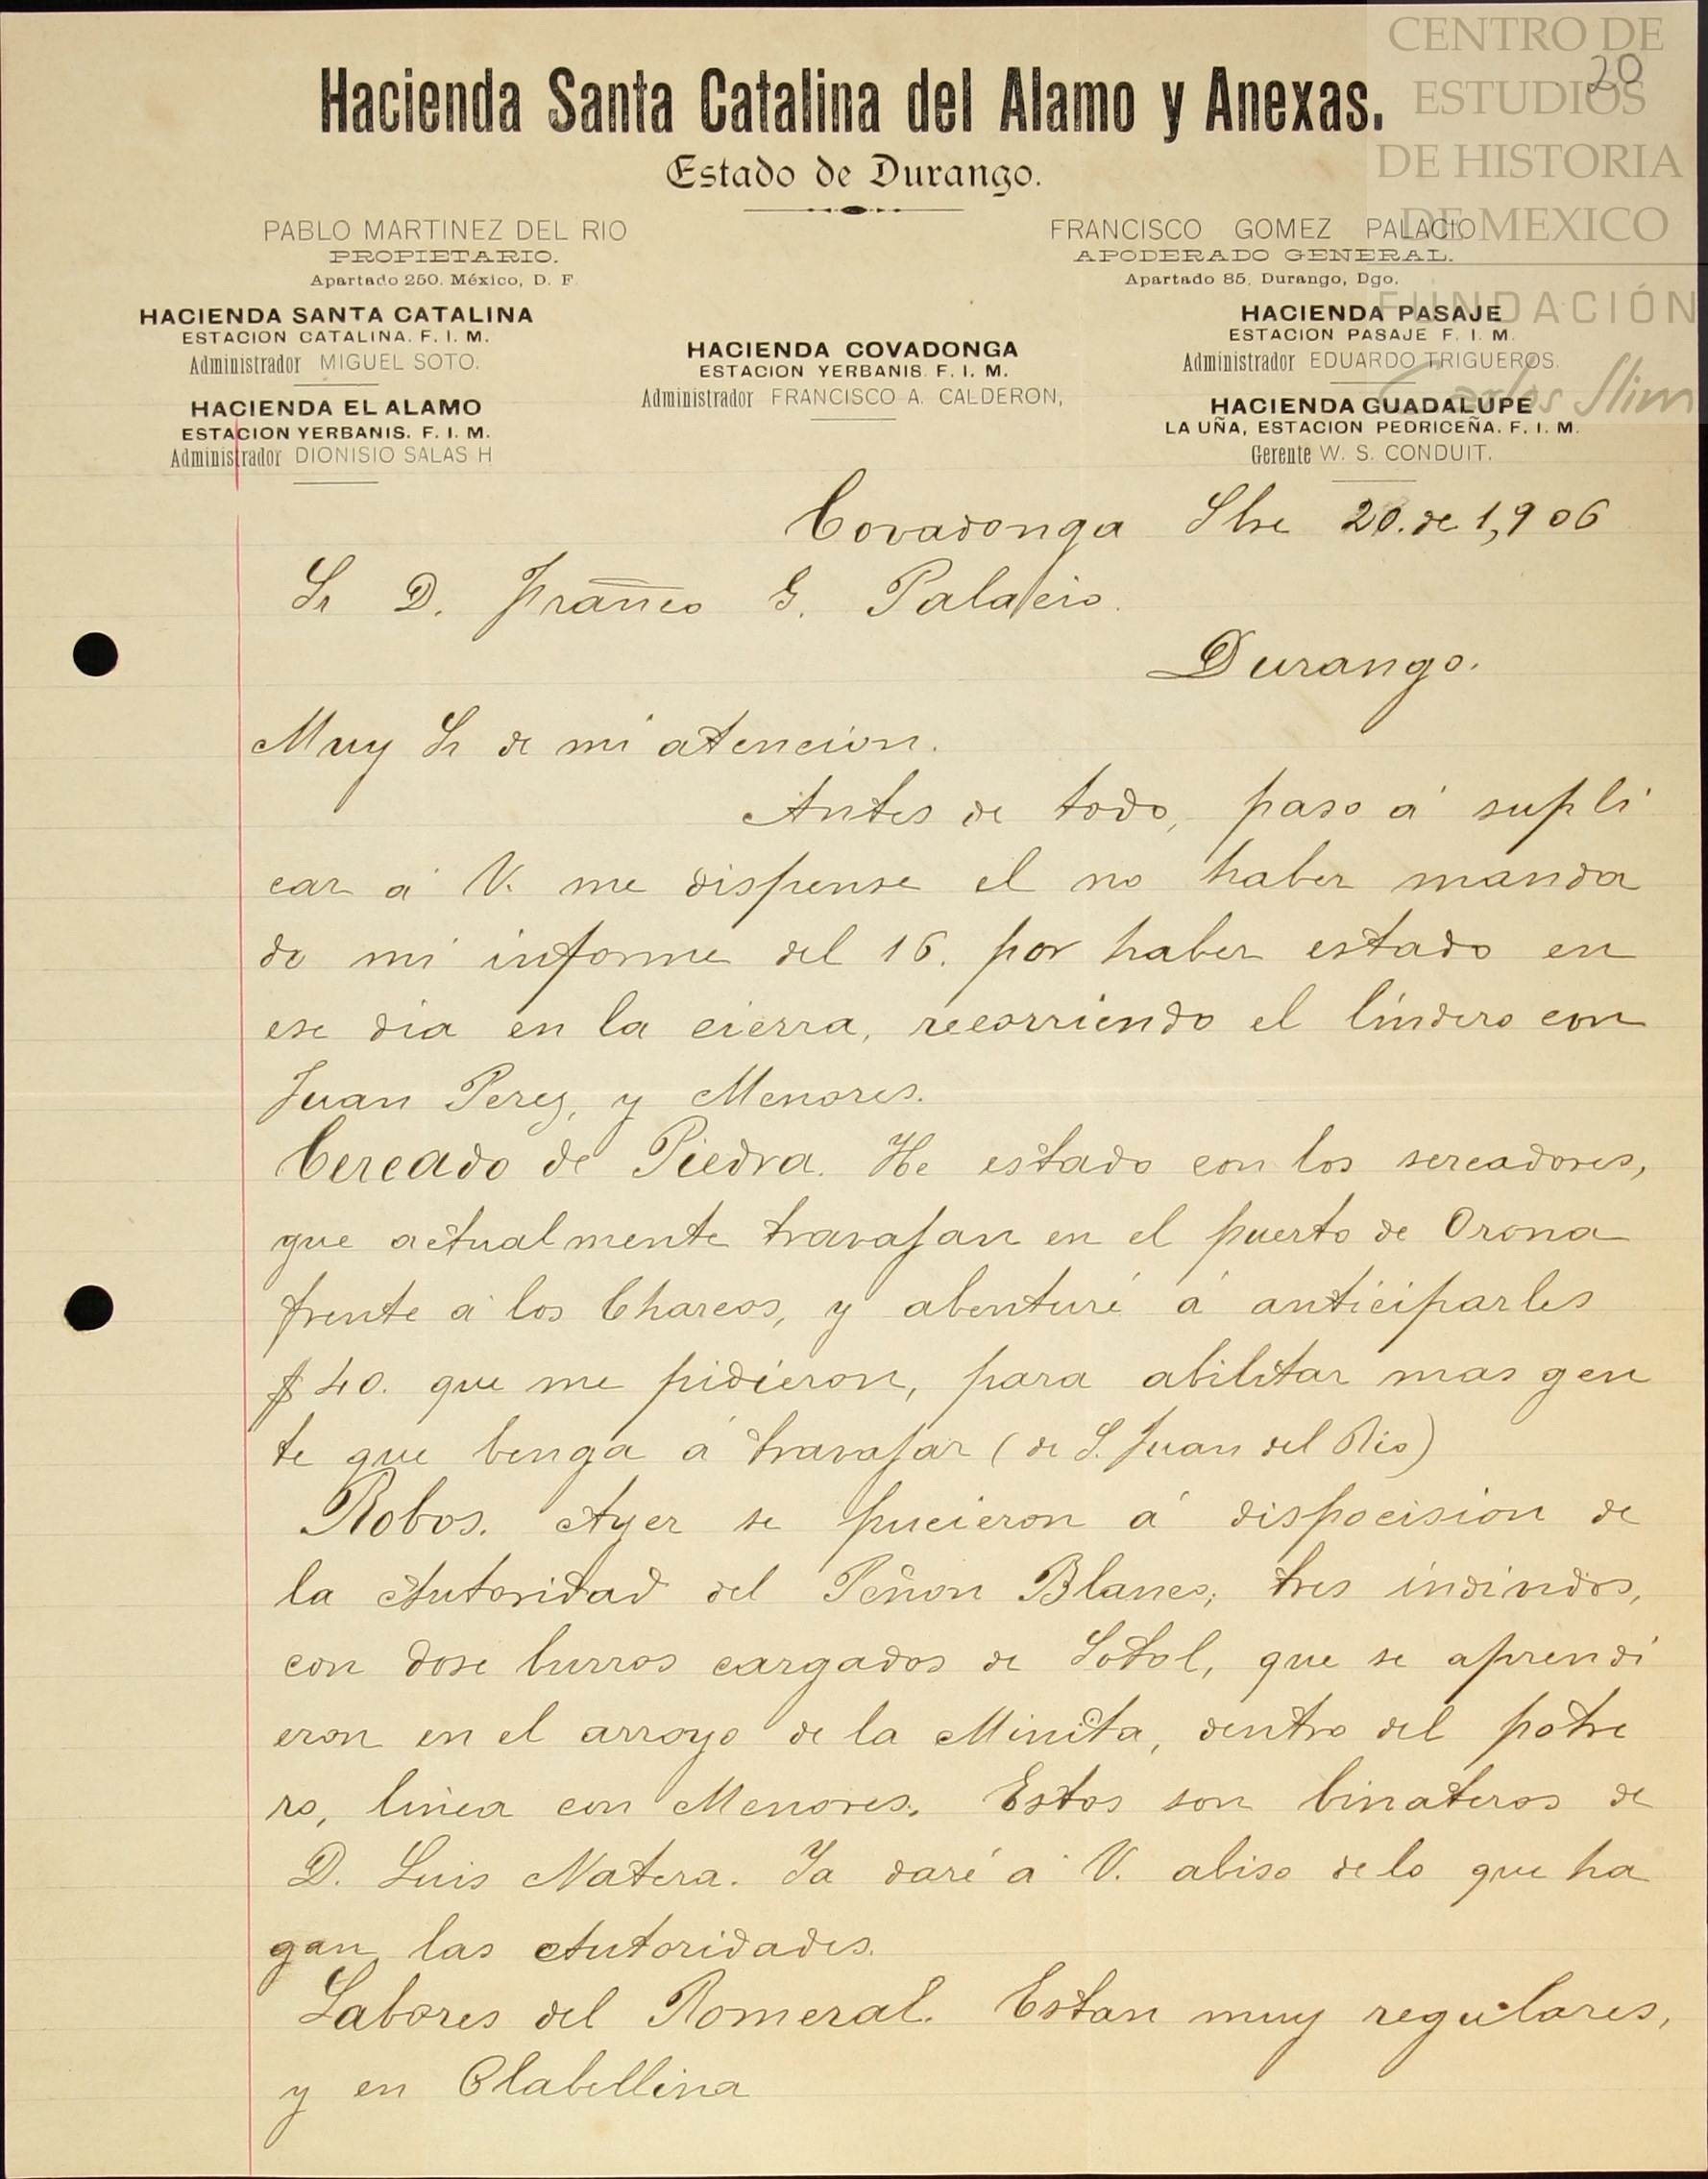 CENTRO DE
ESTUDIOS
DE HISTORIA
DE MEXICO
FUNDACIÓN
Carlos Slim
20
Hacienda Santa Catalina del Alamo y Anexas.
Estado de Durango.
PABLO MARTINEZ DEL RIO
PROPIETARIO.
Apartado 250. México, D. F.
FRANCISCO GOMEZ PALACIO
APODERADO GENERAL.
Apartado 85, Durango, Dgo.
HACIENDA SANTA CATALINA
ESTACION CATALINA. F. I. M.
Administrador MIGUEL SOTO.
HACIENDA EL ALAMO
ESTACION YERBANIS. F. I. M.
Administrador DIONISIO SALAS H
HACIENDA COVADONGA
ESTACION YERBANIS. F. I. M.
Administrador FRANCISCO A. CALDERON,
HACIENDA PASAJE
ESTACION PASAJE F. I. M.
Administrador EDUARDO TRIGUEROS.
HACIENDA GUADALUPE
LA UÑA, ESTACION PEDRICEÑA. F. I. M.
Gerente W. S. CONDUIT.
Covadonga Sbre 20. de 1,906
Sr D. Franco G. Palacio.
Durango.
Muy Sr de mi atencion.
Antes de todo, paso á supli
car a V. me dispense el no haber manda
do mi informe del 16. por haber estado en
ese dia en la cierra, recorriendo el lindero con
Juan Perez, y Menores.
Cercado de Piedra. He estado con los sercadores,
que actualmente travajan en el puerto de Orona
frente á los Charcos, y abenturé á anticiparles
$40. que me pidieron, para abilitar mas gen
te que benga á travajar (de S. Juan del Rio)
Robos. Ayer se pucieron á dispocision de
la Autoridad del Peñon Blanco; tres individos,
con dose burros cargados de Sotol, que se aprendi
eron en el arroyo de la Minita, dentro del potre
ro, linea con Menores. Estos son binateros de
D. Luis Natera. Ya daré á V. abiso de lo que ha
gan las Autoridades.
Labores del Romeral. Estan muy regulares,
y en Clabellina